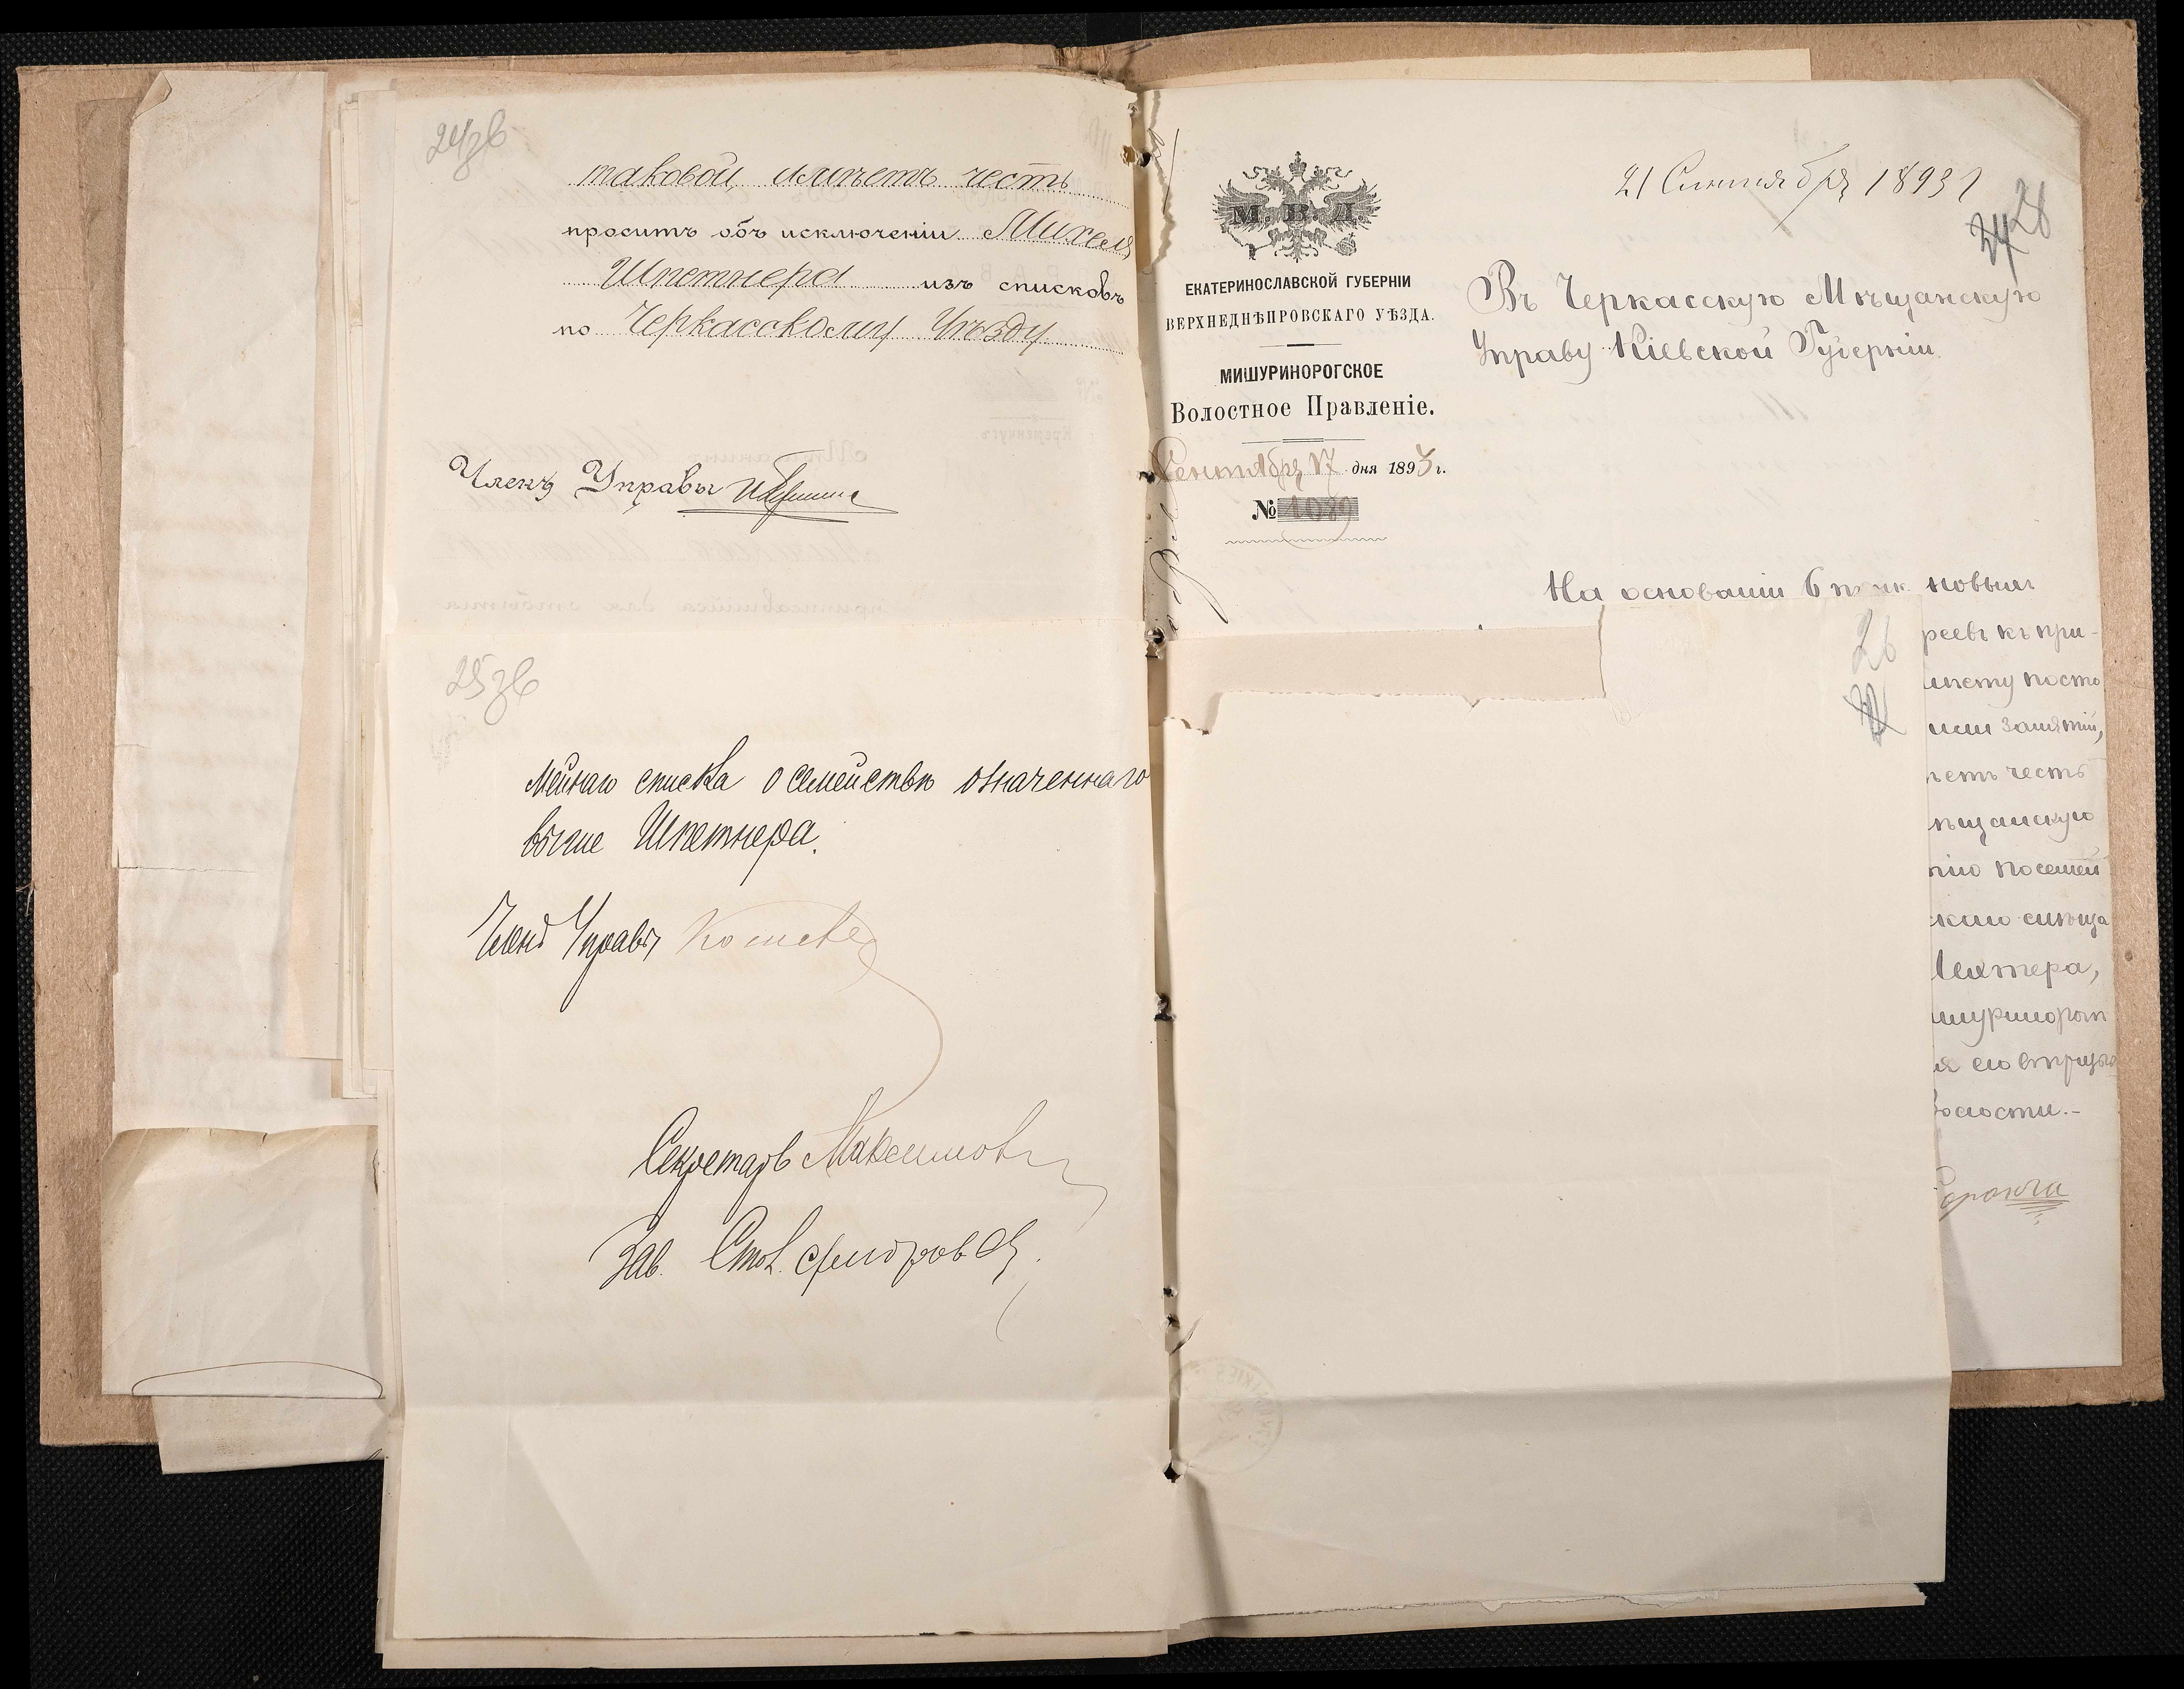 24зв
таковой, имѣетъ честь
проситъ объ исключеніи Михеля
Шпетнера изъ списковъ
по Черкасскому Уѣзду
Членъ Управы
25зв
мейнаго списка о семействѣ означеннаго
выше Шпетнера.
Членъ Управы
Секретарь Максимов
Зав. Стол.
М. В. Д.
ЕКАТЕРИНОСЛАВСКОЙ ГУБЕРНІИ
ВЕРХНЕДНѢПРОВСКАГО УѢЗДА.
МИШУРИНОРОГСКОЕ
Волостное Правленіе.
Сентября 17 дня 1893 г.
№ 1089
21 Сентября 1893 г
28
Въ Черкасскую Мѣщанскую
Управу Кіевской Губерніи
На основаніи 6 новыхъ
26
реевъ къ при-
мету посто
ими занятій,
ѣетъ честь
ѣщанскую
нію посемей
скаго мѣща
Лехтера,
ишуринорог
волости.-